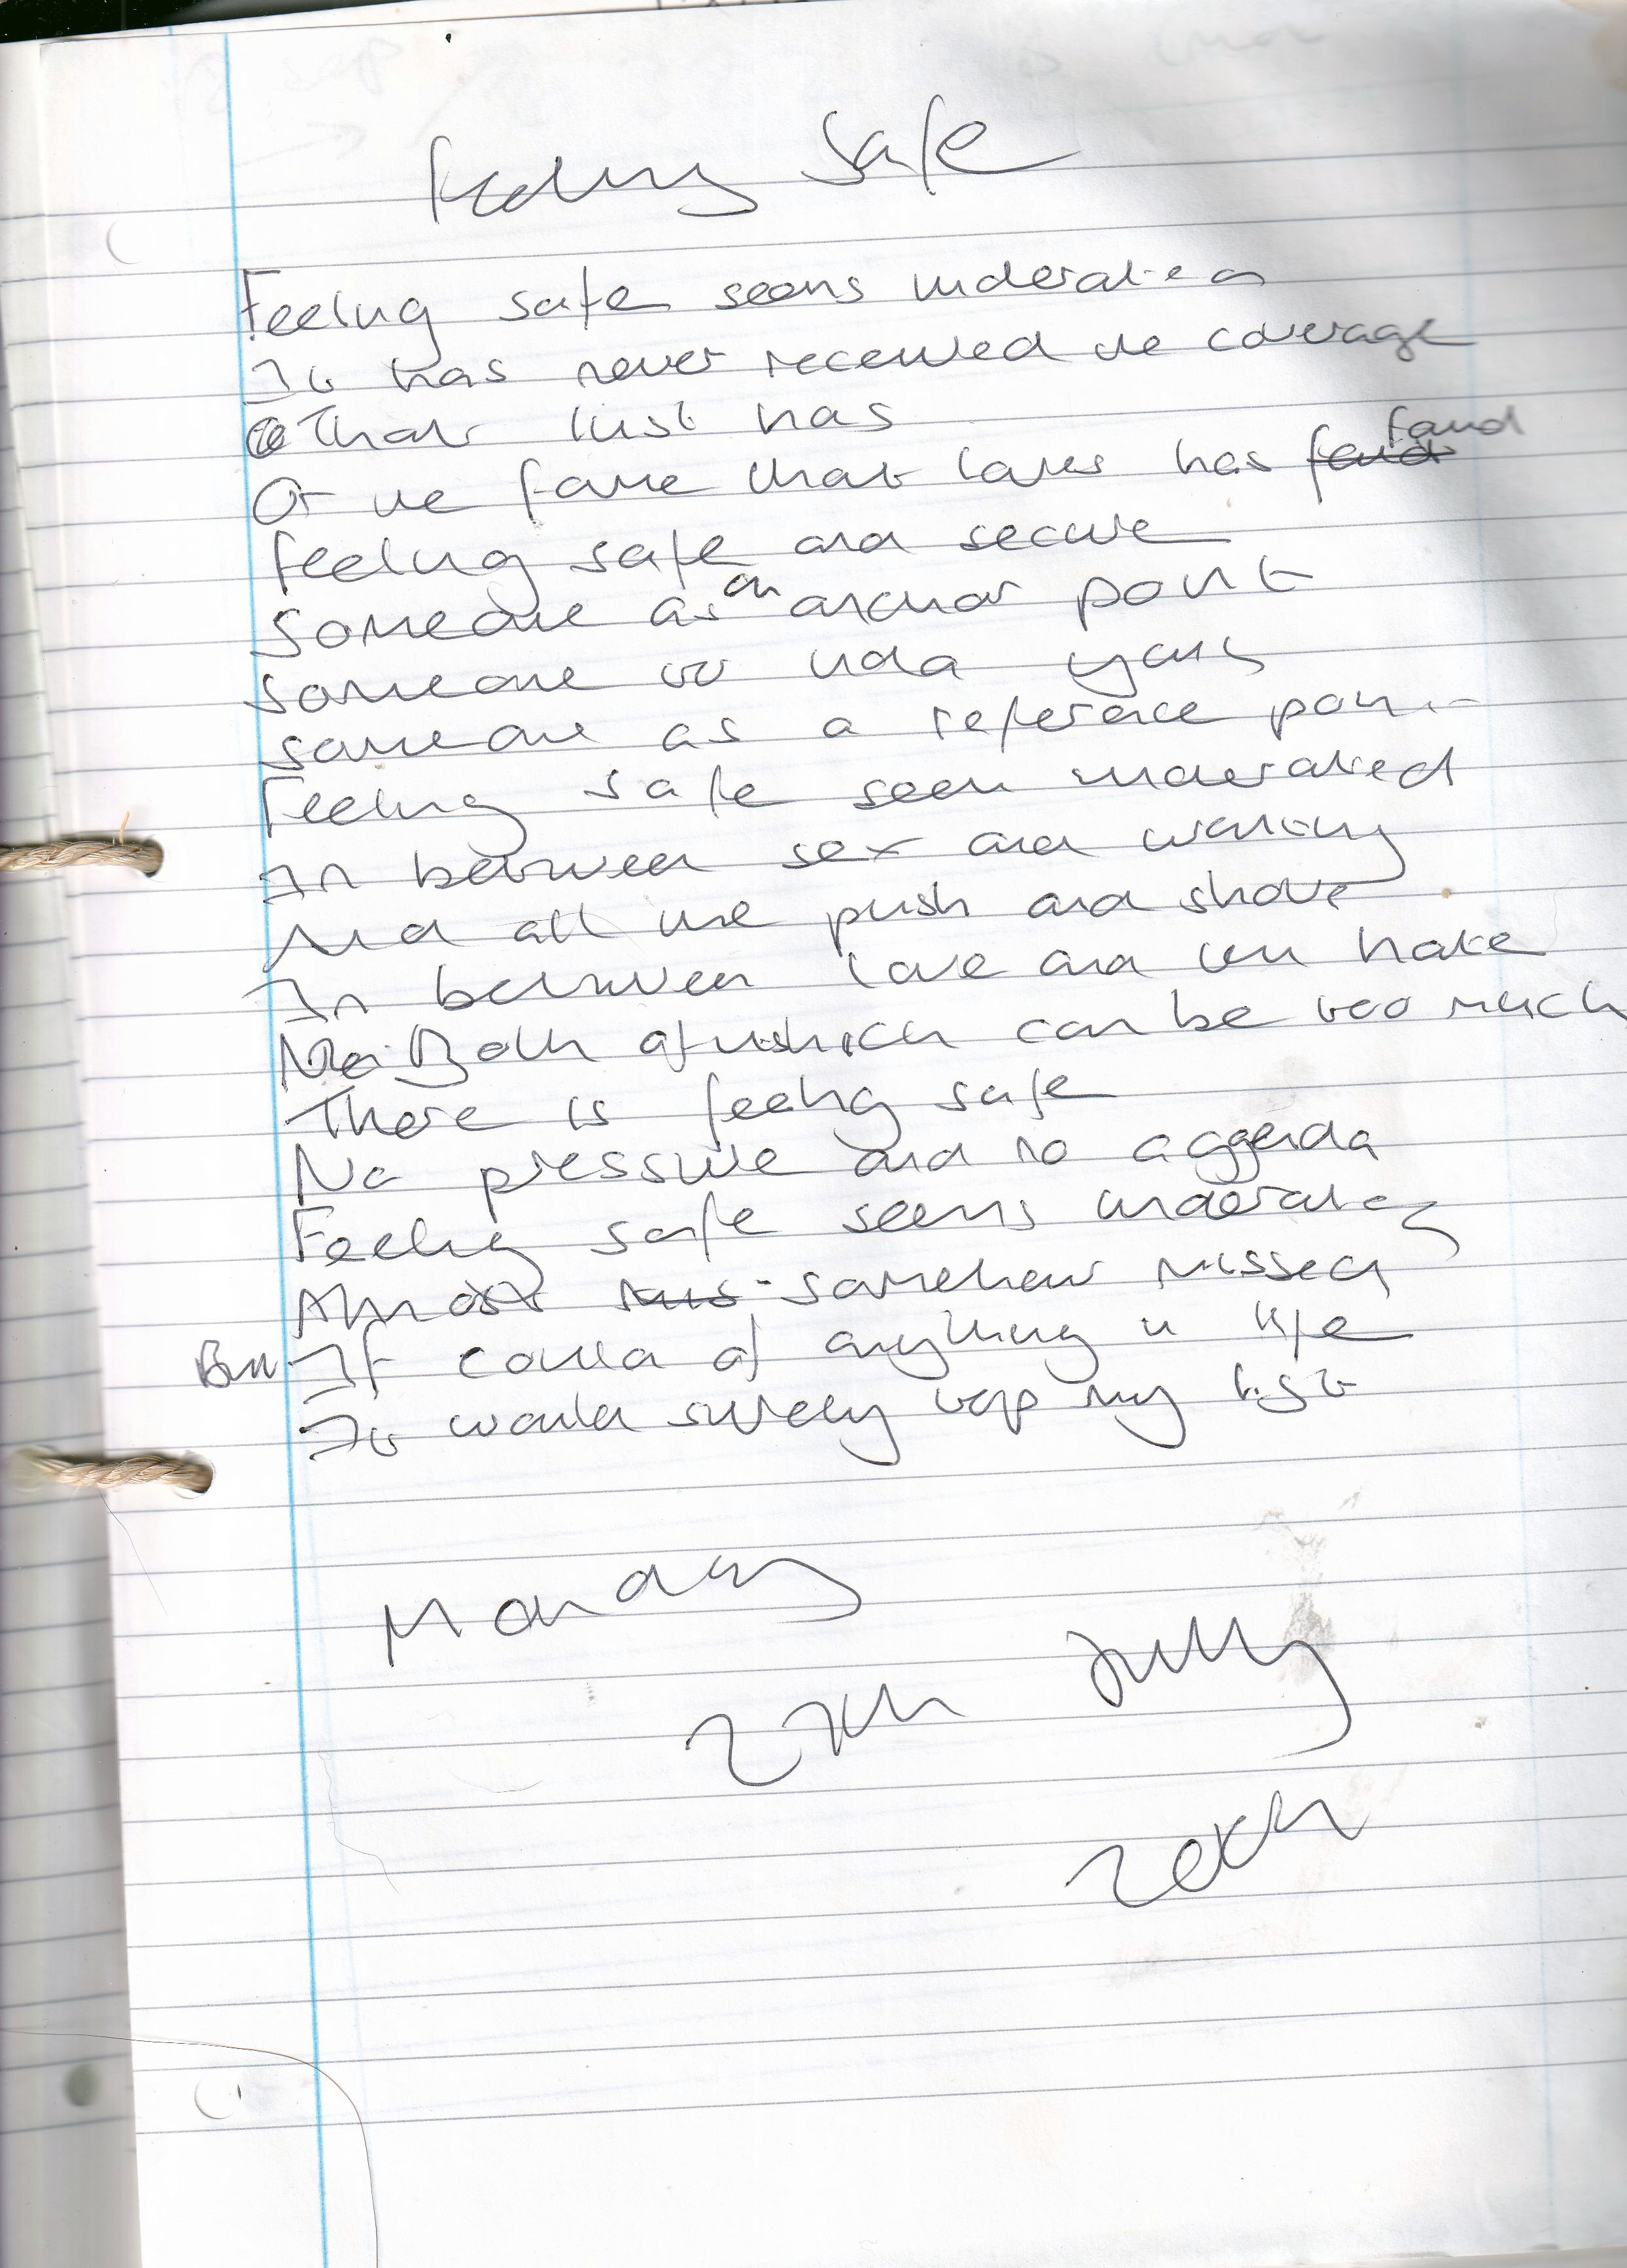 Feeling Safe
Feeling safe seems underated
It has never received the coverage
That lust has
Or the fame that love has found
feeling safe and secure
Someone as an anchor point
someone to hold
someone as a reference point
Feeling safe seem underated
In between sex and wanting
And all the push and shove
In between love and hate
Both of which can be too much
There is feeling safe
No pressure and no aggenda
Feeling safe seems underated
Almost somehow missed
But If could of anything in life
It would surely top my list
Monday
27th July